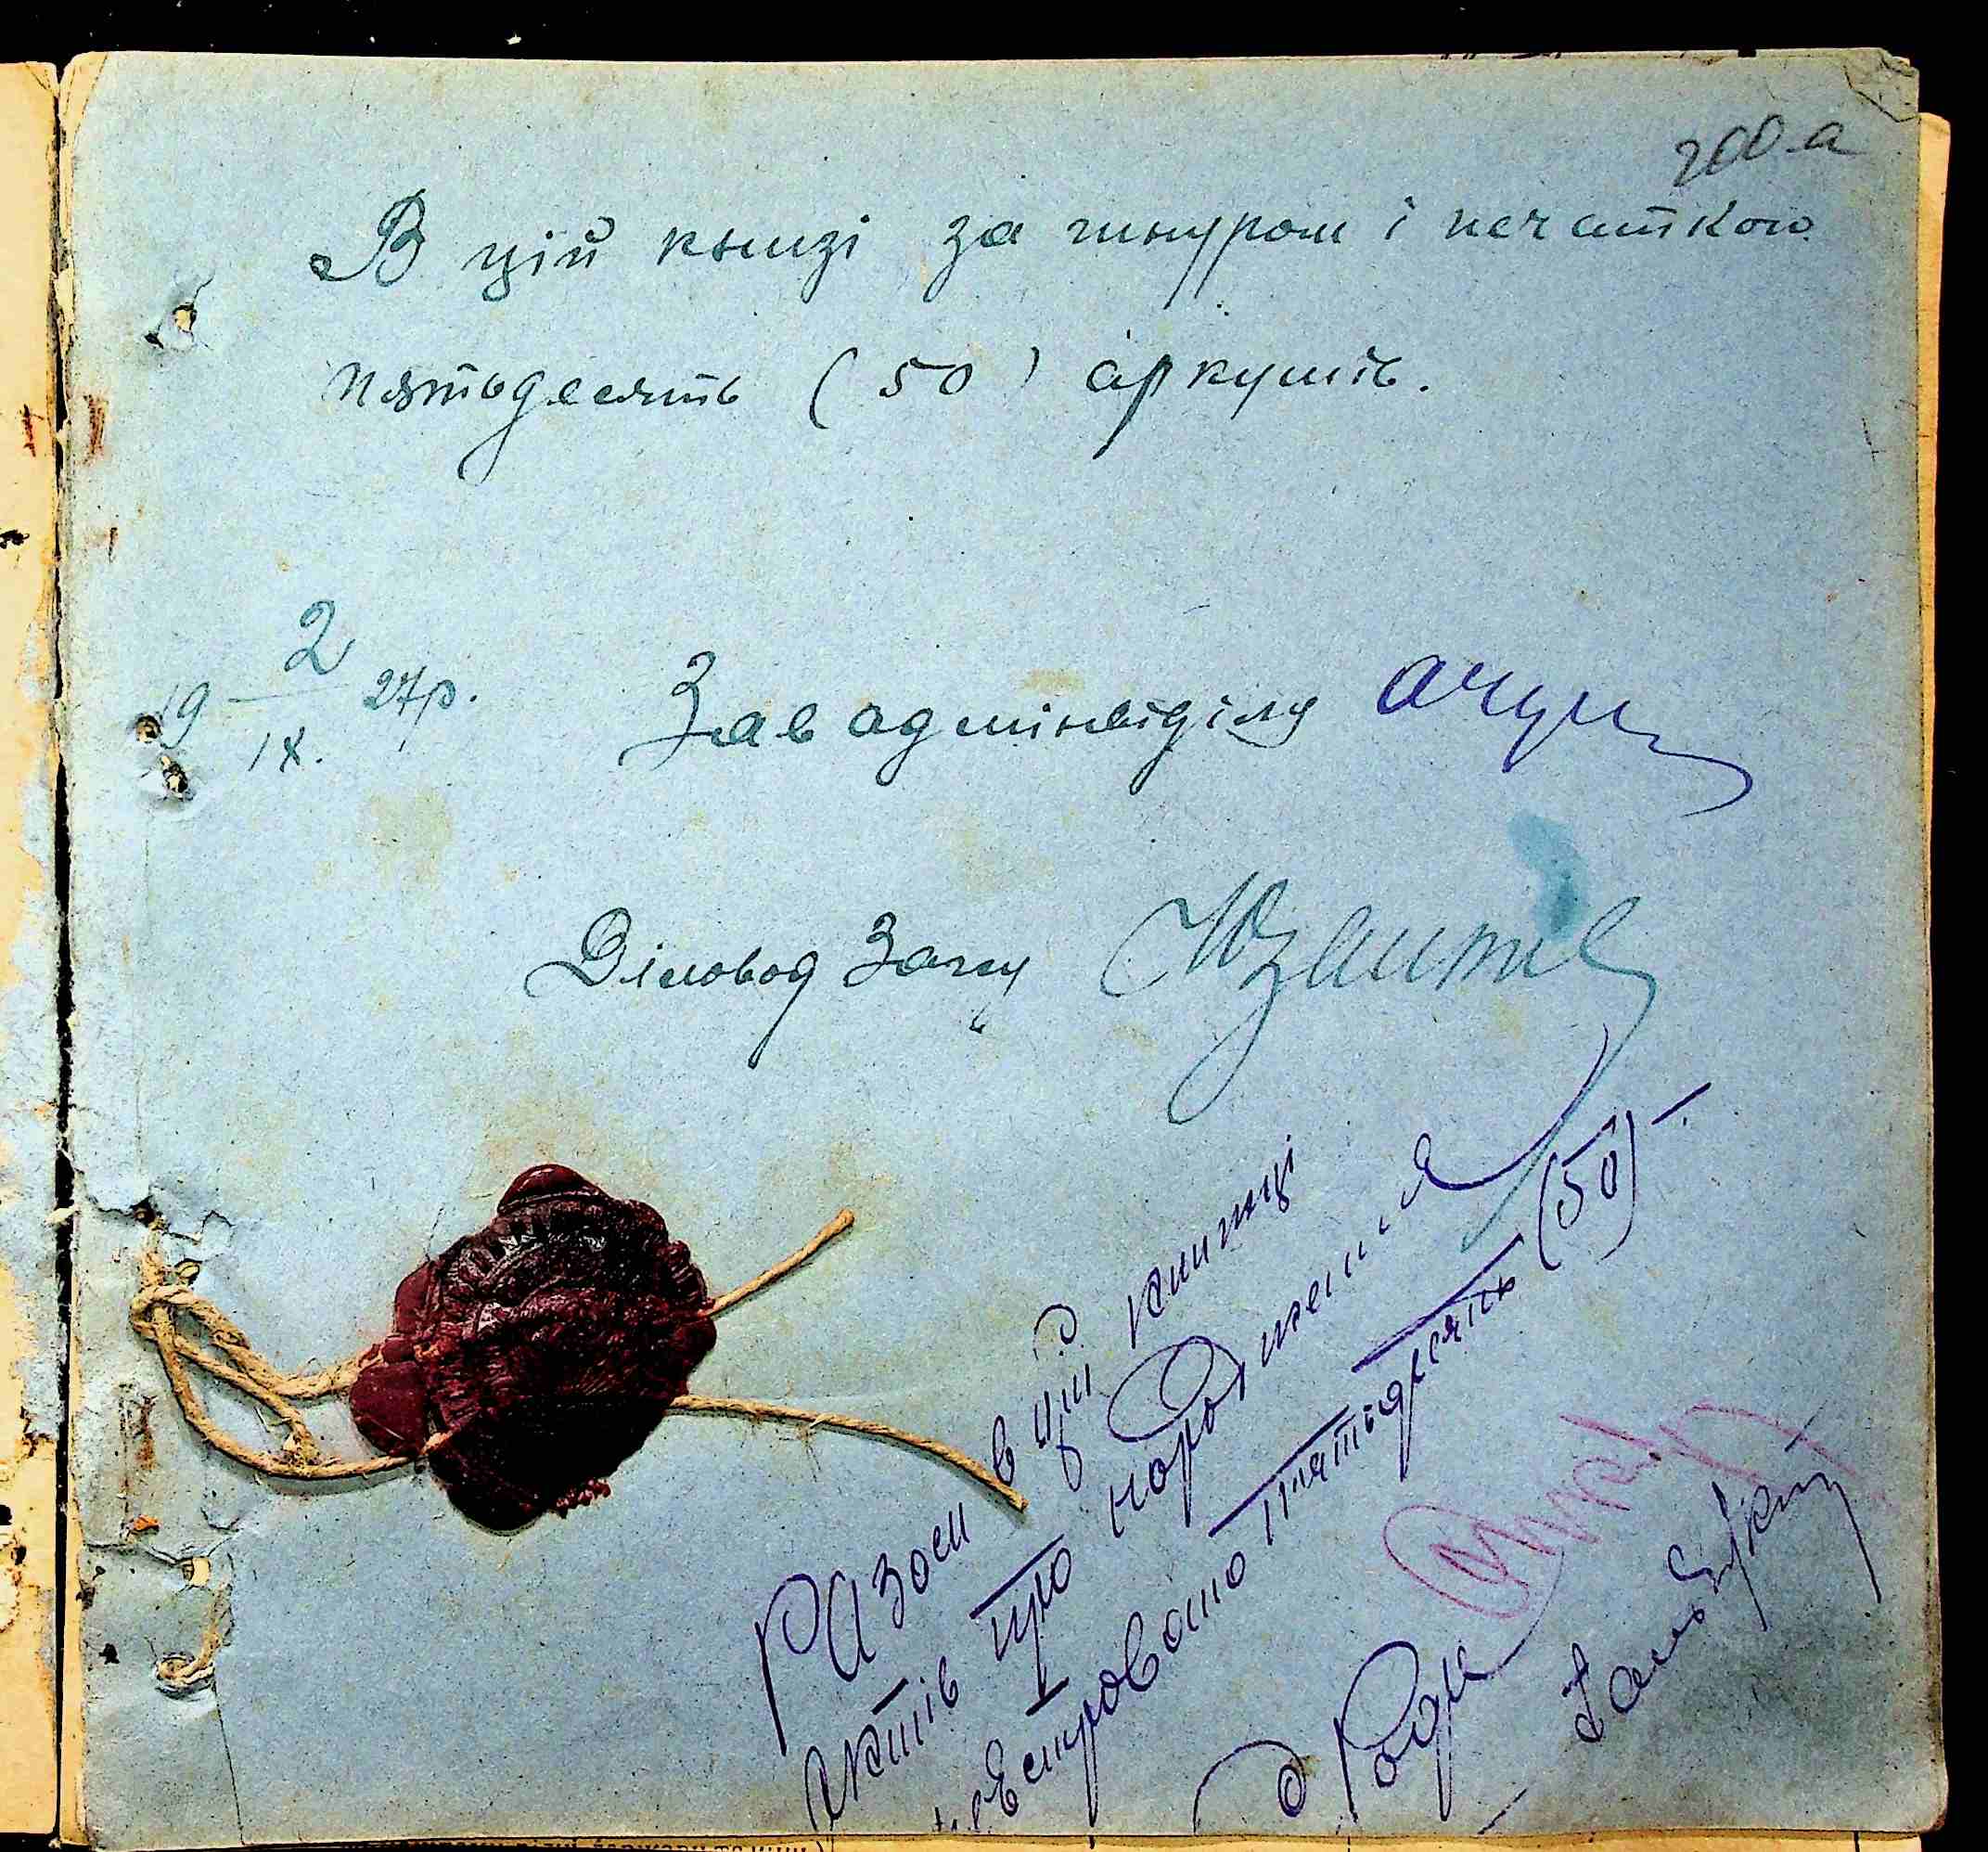 200-а
В цій книзі за шнуром і печаткою
пятьдесять (50) аркушів.
19 2/IX. 27р. Зав адмінвідділу
Діловод Загсу
Разом в цій книжці
актів про народження
зареєстровано п'ятьдесять (50) –